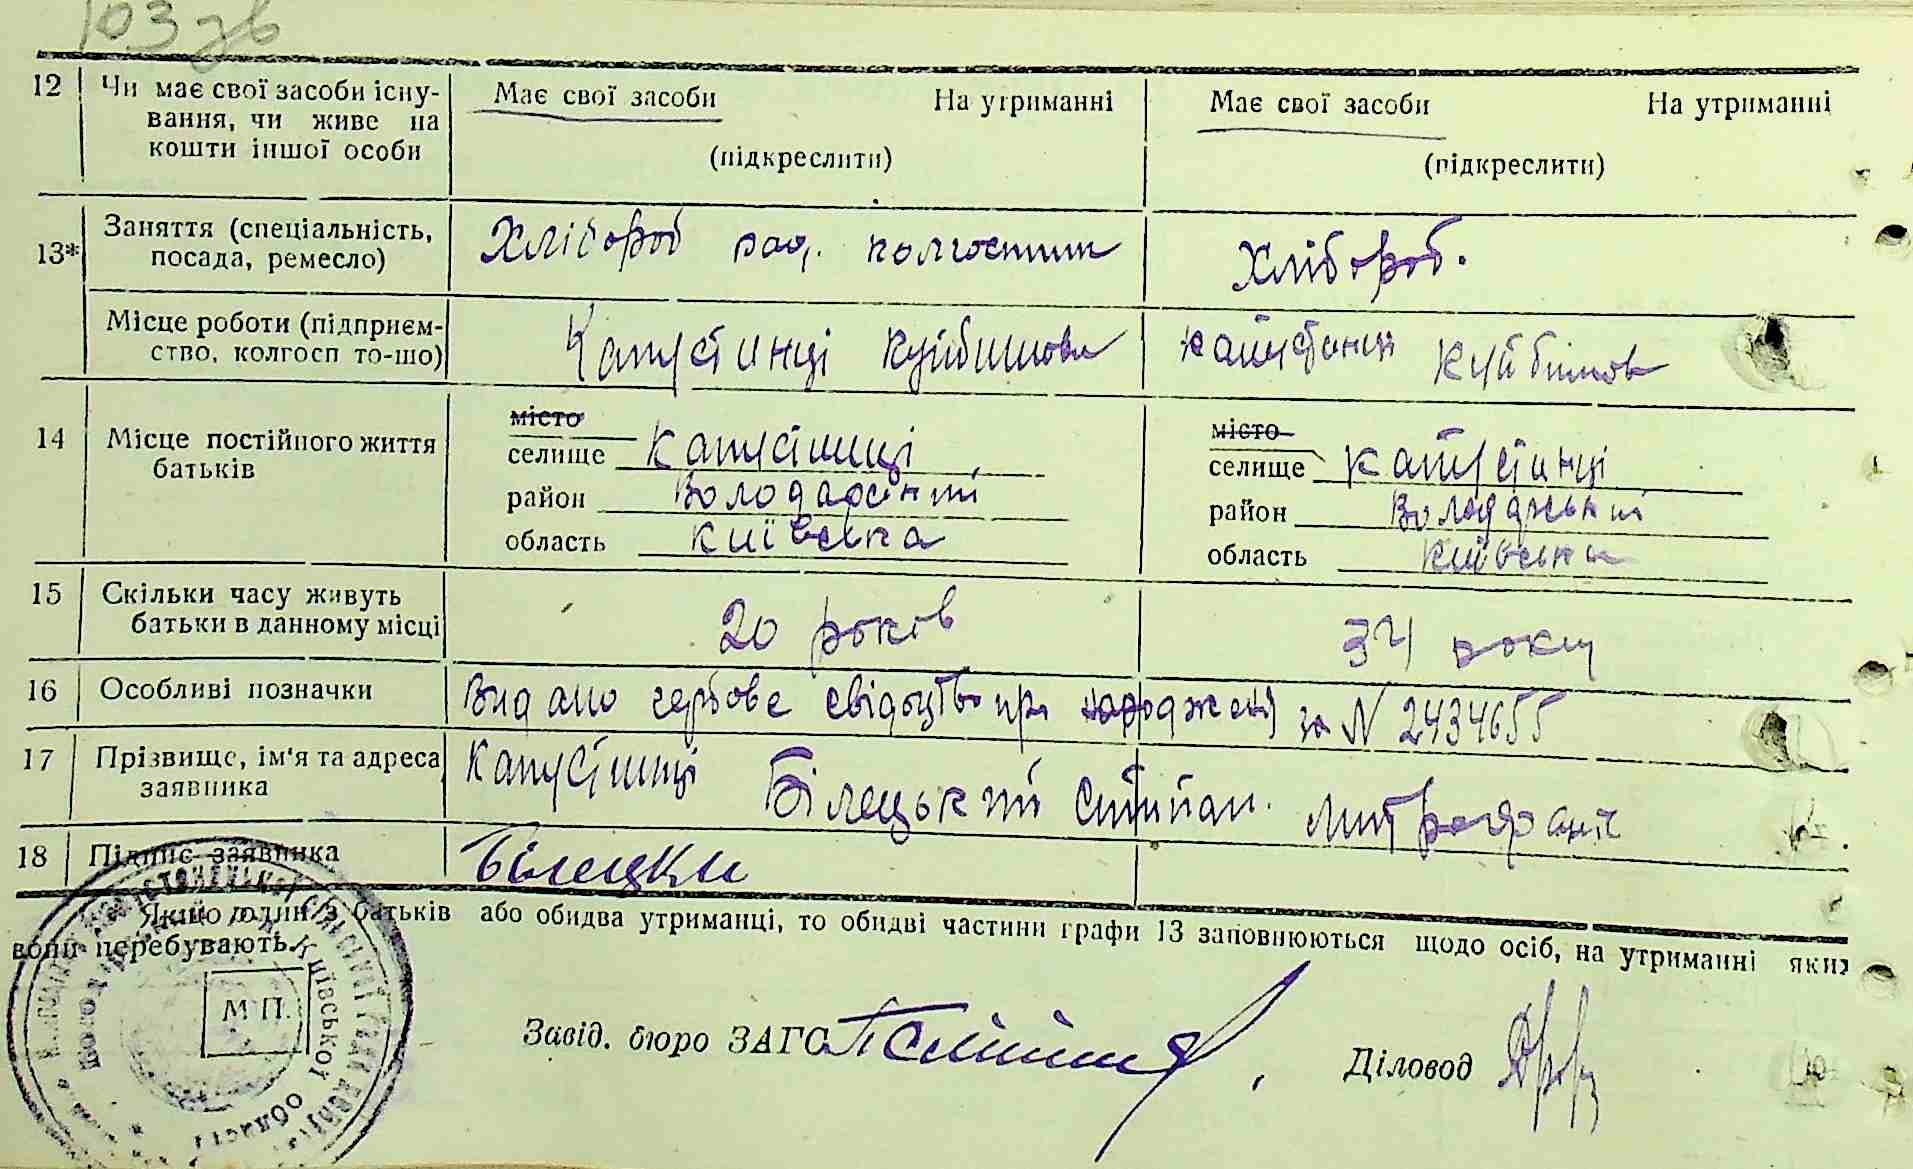 103 зв
12 Чи має свої засоби існу- Має свої засоби На утриманні Має свої засоби На утриманні
вання, чи живе на
кошти іншої особи (підкреслити) (підкреслити)
13* Заняття (спеціальність, Хлібороб колгоспник Хлібороб.
посада, ремесло)
Місце роботи (підприєм- Капустинці Куйбишова Капустинці Куйбишов
ство, колгосп то-що)
14 Місце постійного життя місто місто
батьків селище Капустинці селище Капустинці
район Володарський район Володарський
область Київська область Київська
15 Скільки часу живуть 20 років 34 роки
батьки в данному місці
16 Особливі позначки Видано гербове свідоцтво про народження за N 2434655
17 Прізвище, ім'я та адреса Капустинці Білецький Степан Митрофан
заявника
18 Підпис заявника Білецки
Якщо один з батьків або обидва утриманці, то обидві частини графи 13 заповнюються щодо осіб, на утриманні яких
вони перебувають.
М П.
Київської області
Завід. бюро ЗАГС Діловод